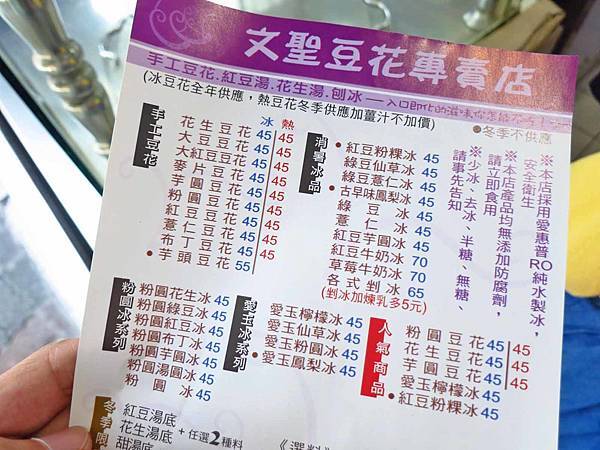 文聖豆花專賣店
手工豆花.紅豆湯.花生湯.刨冰
(冰豆花全年供應，熱豆花冬季供應加薑汁不加價)
●冬季不供應
手工豆花
冰 熱
花生豆花 45 45
大豆豆花 45 45
大紅豆豆花 45 45
麥片豆花 45 45
芋圓豆花 45 45
粉圓豆花 45 45
紅豆豆花 45 45
薏仁豆花 45 45
布丁豆花 45 45
●芋頭豆花 55
消暑冰品
●紅豆粉粿冰 45
綠豆仙草冰 45
綠豆薏仁冰 45
●古早味鳳梨冰 45
綠豆冰 45
薏仁冰 45
紅豆芋圓冰 45
紅豆牛奶冰 70
草莓牛奶冰 70
各式剉冰 65
(剉冰加煉乳多5元)
※本店採用愛惠普RO純水製冰，
安全衛生
※本店產品均無添加防腐劑，
請立即食用
※少冰、去冰、半糖、無糖、
請事先告知
粉圓冰系列
粉圓花生冰 45
粉圓綠豆冰 45
粉圓紅豆冰 45
粉圓布丁冰 45
粉圓芋圓冰 45
粉圓湯圓冰 45
粉圓冰 45
愛玉冰系列
愛玉檸檬冰 45
愛玉仙草冰 45
愛玉粉圓冰 45
●愛玉鳳梨冰 45
人氣商品
粉圓豆花 45 45
花生豆花 45 45
芋圓豆花 45 45
愛玉檸檬冰 45
●紅豆粉粿冰 45
冬季
紅豆湯底
花生湯底 +任選2種料
甜湯底
《選料》